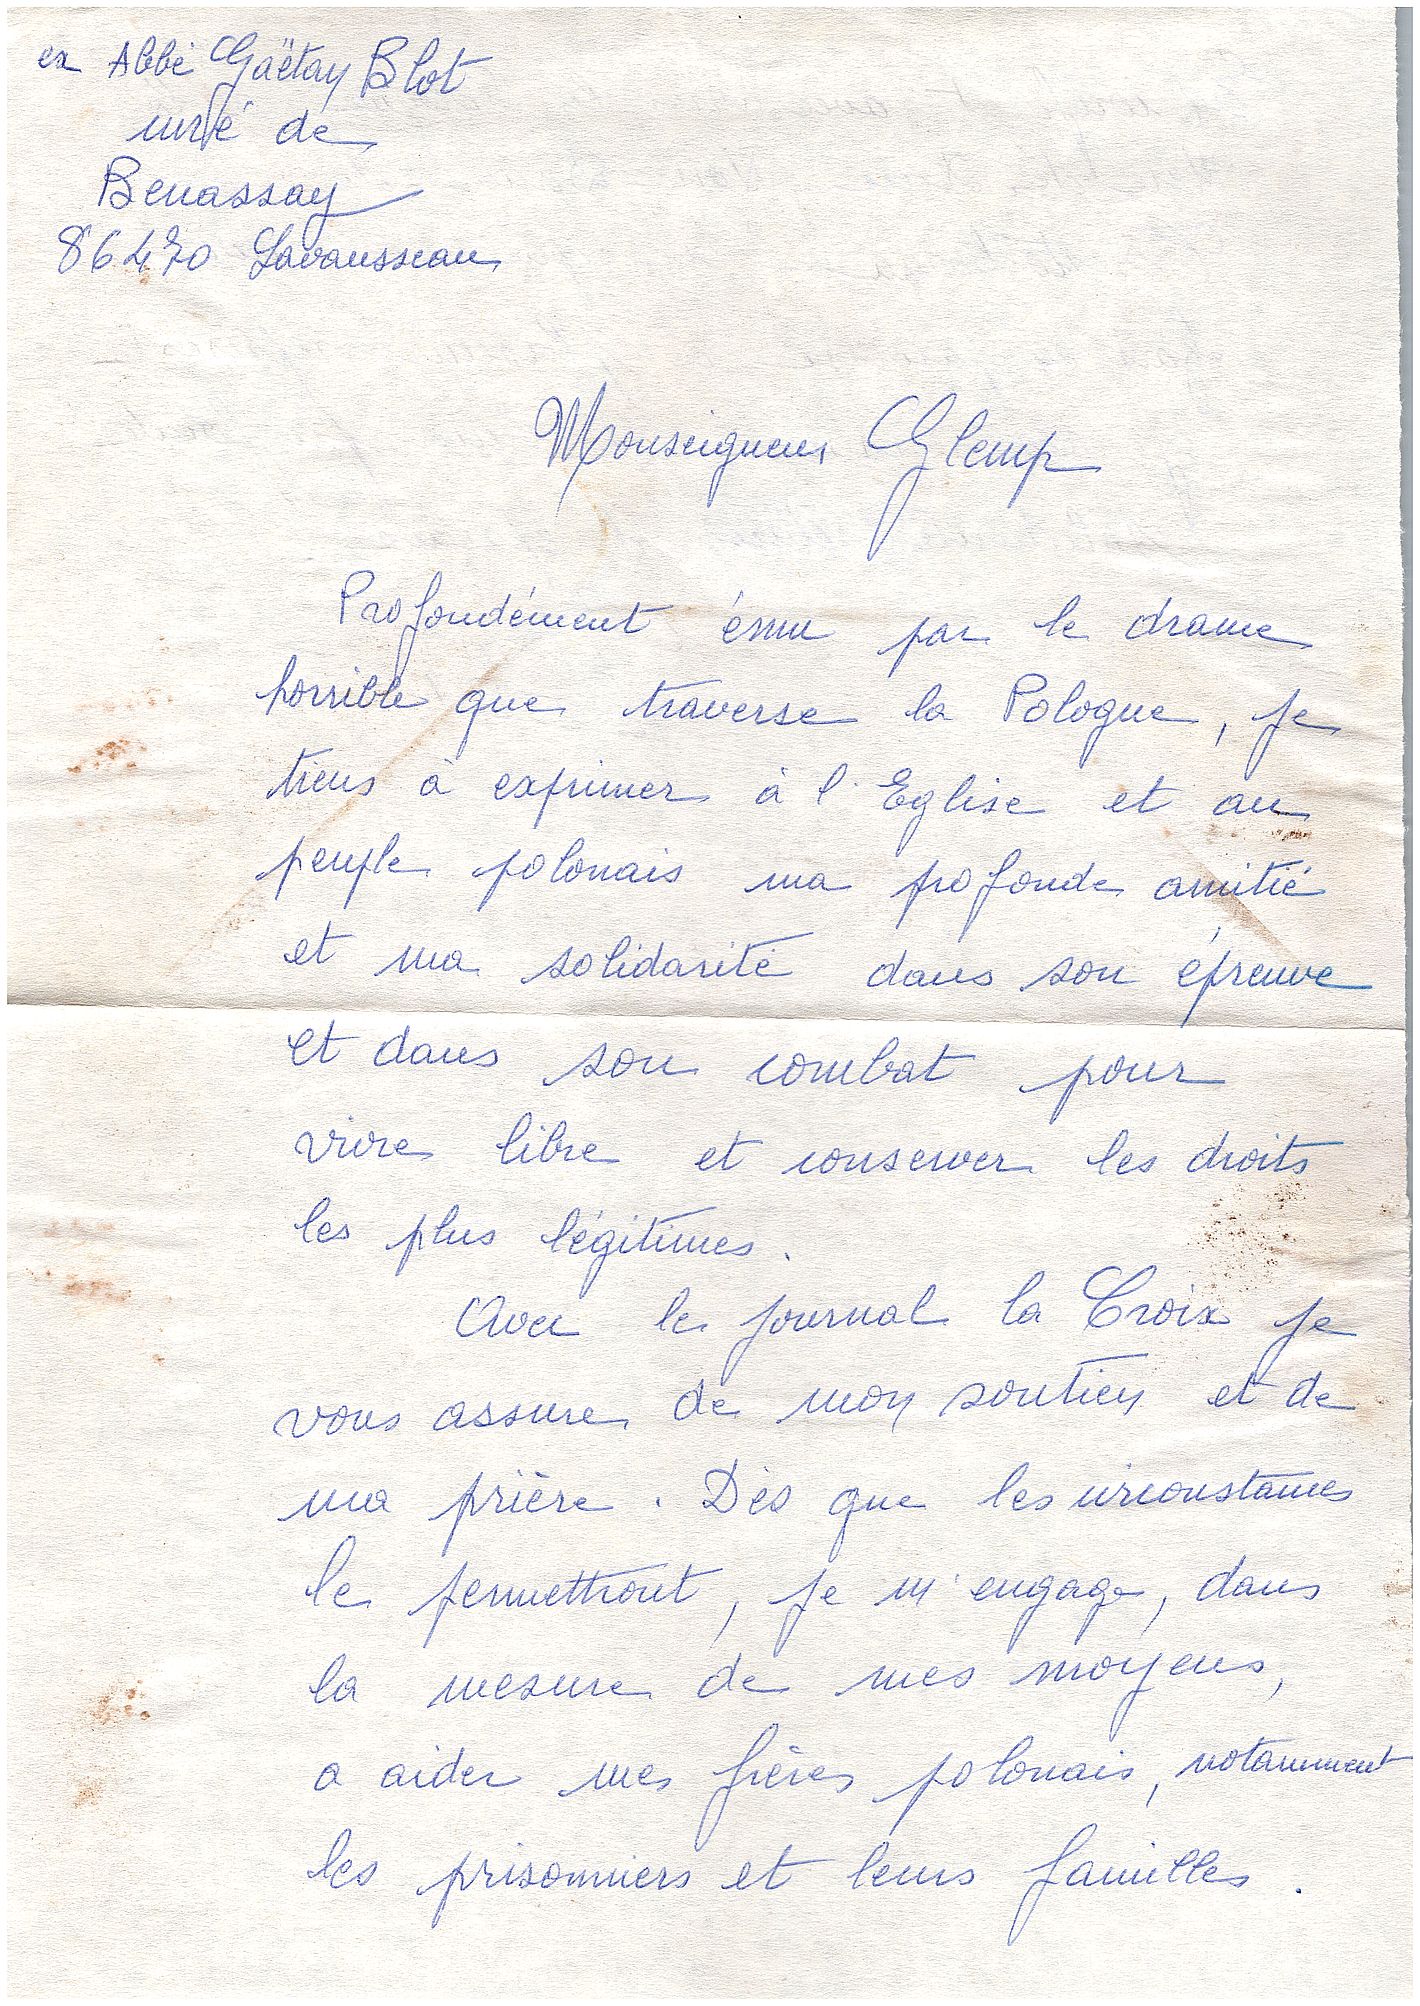 ex Abbé Gaëtan Blot
curé de
Benassay
86470 Lavausseau
Monseigneur Glemp
Profondément ému par le drame
horrible que traverse la Pologne, je
tiens à exprimer à l'Eglise et au
peuple polonais ma profonde amitié
et ma solidarité dans son épreuve
et dans son combat pour
vivre libre et conserver les droits
les plus légitimes.
Avec le journal la Croix je
vous assure de mon soutien et de
ma prière. Dès que les circonstances
le permettront, je m'engage, dans
la mesure de mes moyens,
a aider mes frères polonais, notamment
les prisonniers et leurs familles.